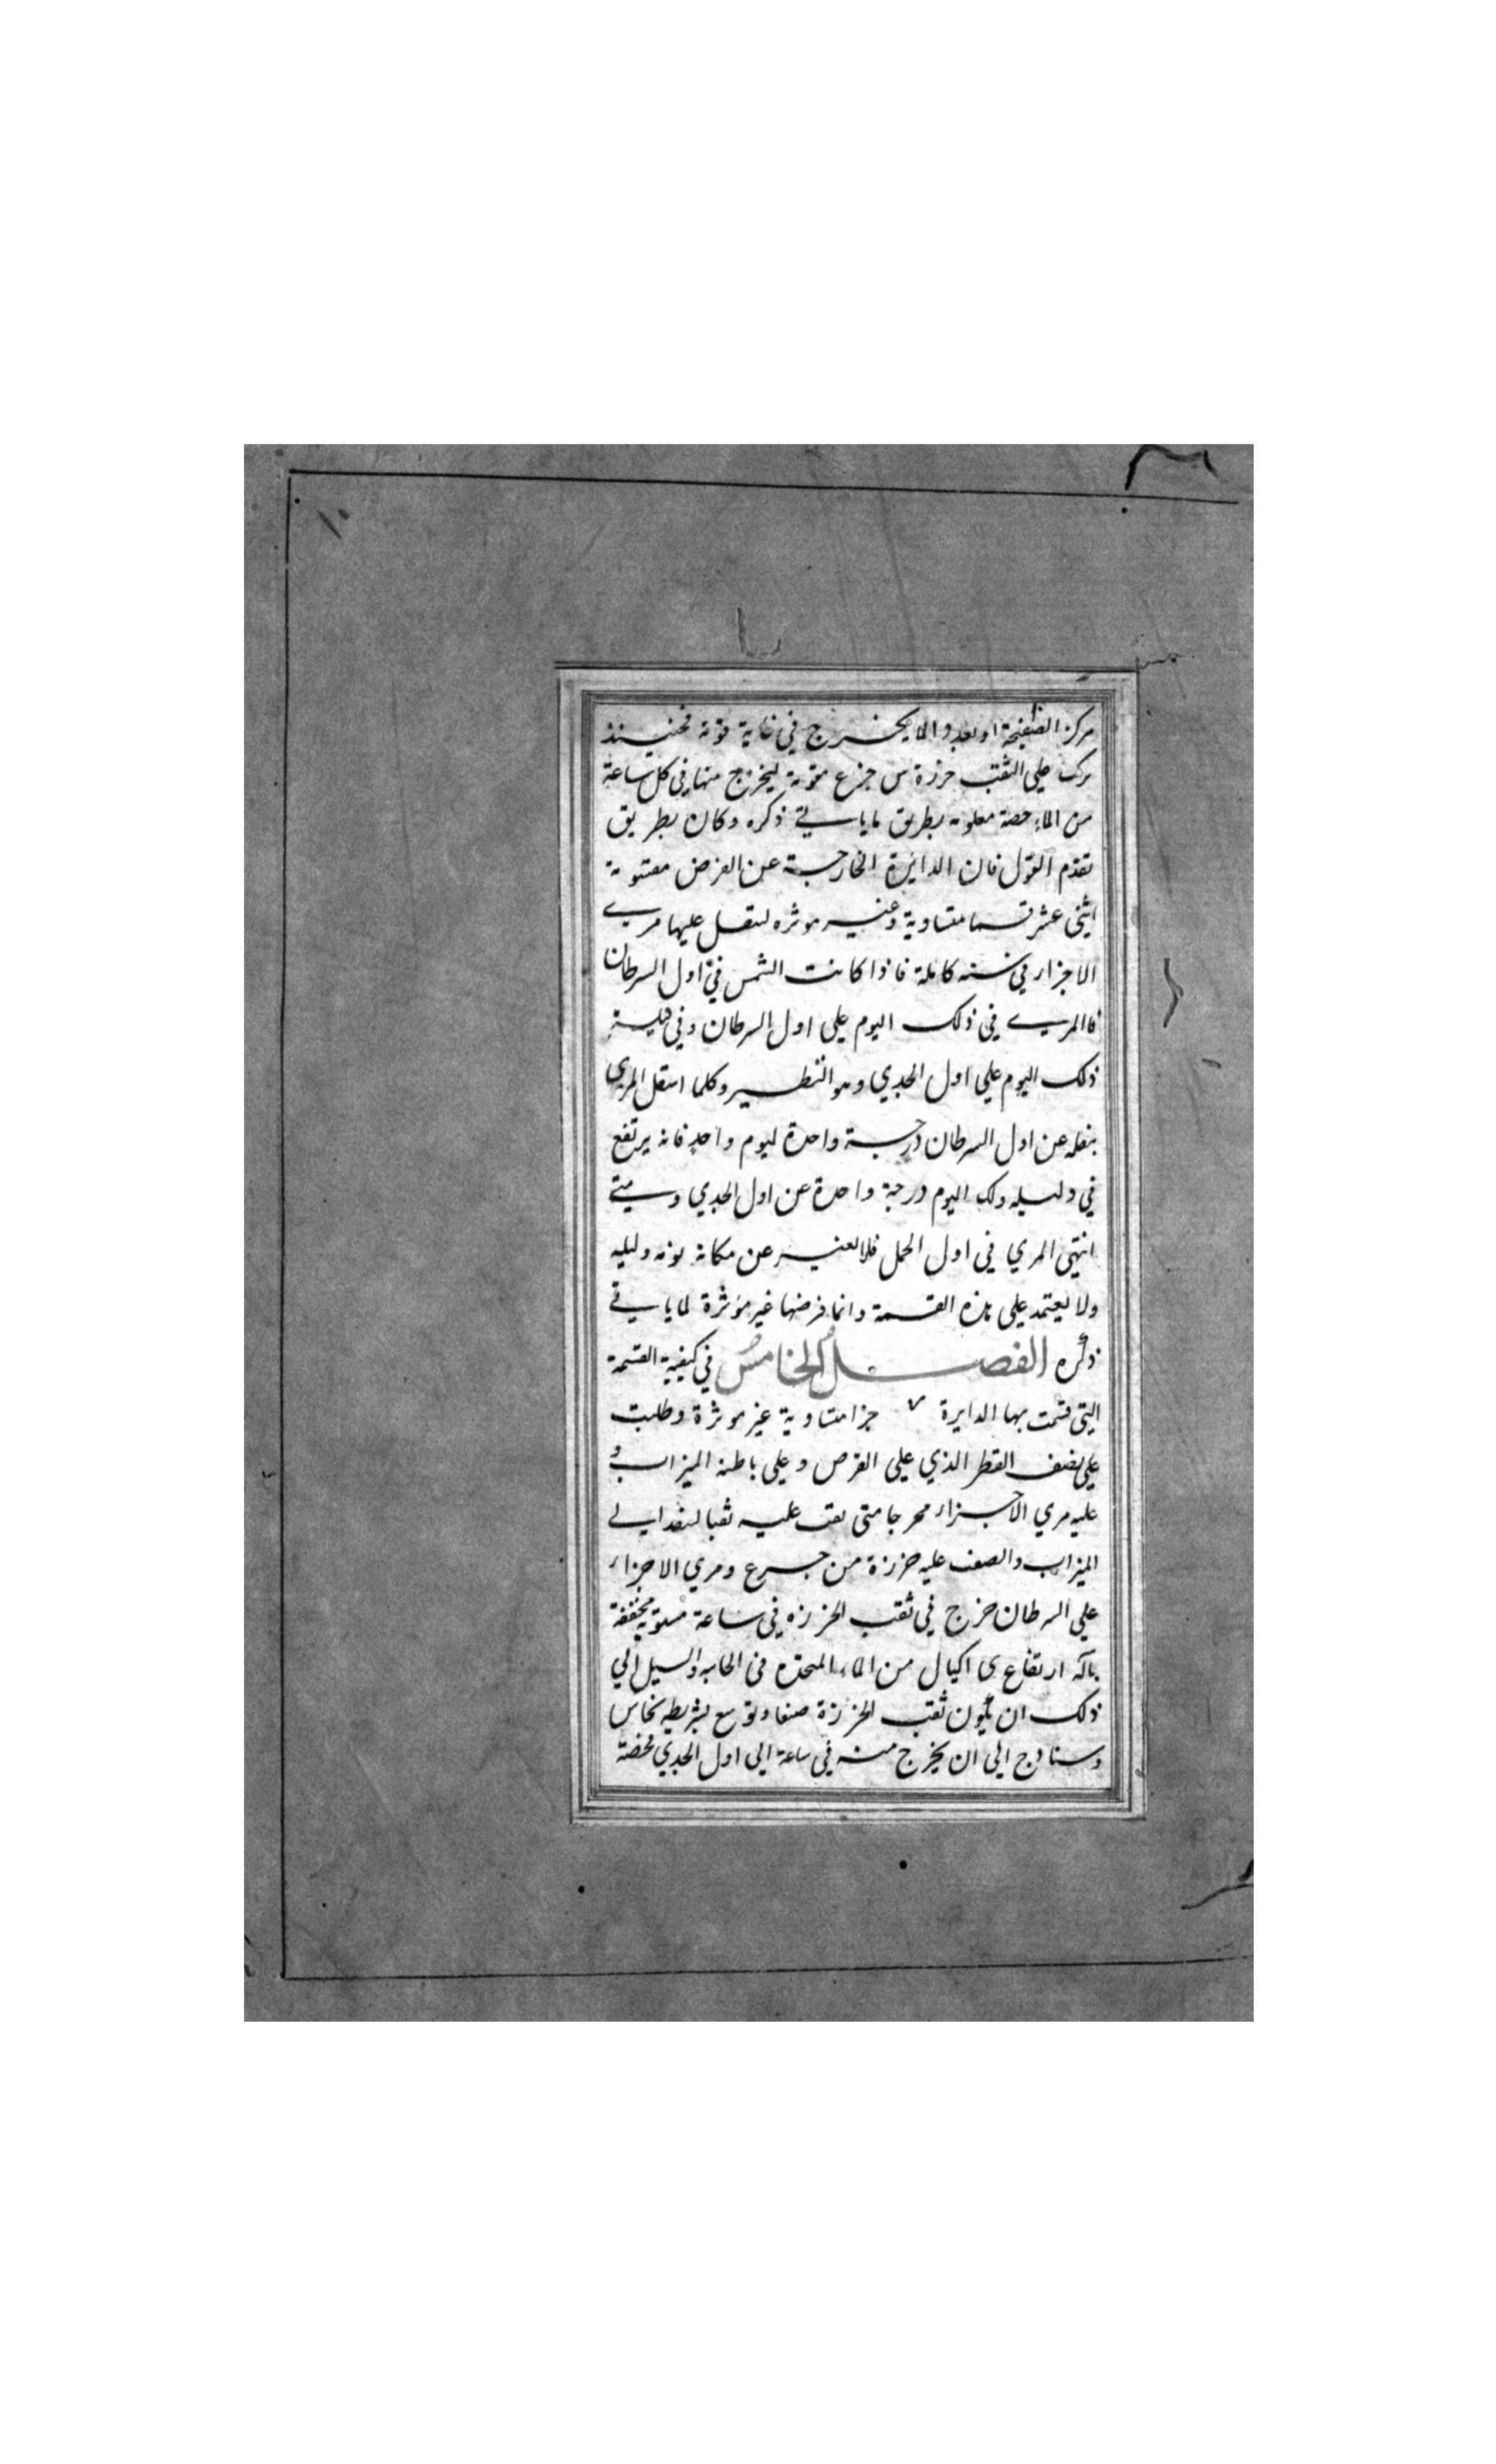 مركز الصفيحة او بعد والما يخرج في غاية قوته فحينئذ
ركب على الثقب خرزة من جزع مثقوبة ليخرج منها في كل ساعة
من الماء حصة معلومه بطريق ما ياتي ذكره وكان بطريق
تقدم القول فان الدائرة الخارجة عن القرض مقسومة
اثنى عشر قسما متساوية وغير موثره لتنقل عليها مري
الاجزاء في سنه كاملة فاذا كانت الشمس في اول السرطان
فالمري في ذلك اليوم على اول السرطان وفي ليلة
ذلك اليوم على اول الجدي وهو النظير وكلما انتقل المري
بنقله عن اول السرطان درجة واحدة ليوم واحد فانه يرتفع
في وليله ذلك اليوم درجة واحدة عن اول الجدي ومتى
انتهى المري في اول الحمل فلا يغير عن مكانه يومه وليله
ولا يعتمد على هذه القسمة وانما فرضها غير موثرة لما ياتي
ذكره الفصل الخامس في كيفية القسمة
التي قسمت بها الدايرة جزا متساوية غير موثرة وطلبت
على نصف القطر الذي على القرص وعلى باطنه الميزاب و
عليه مري الاجزاء مخرجا متى ثقب عليه ثقبا لينفد الى
الميزاب والصق عليه خرزة من جزع ومري الاجزاء
على السرطان خرج في ثقب الخرزه في ساعة مستوية
بآلة ارتفاع ى اكيال من الماء المتحدره في الخابيه والسبيل الي
ذلك ان يكون ثقب الخرزة ضيقا ويوسع بشريطه نحاس
وسنادج الى ان يخرج منه في ساعة الى اول الجدي